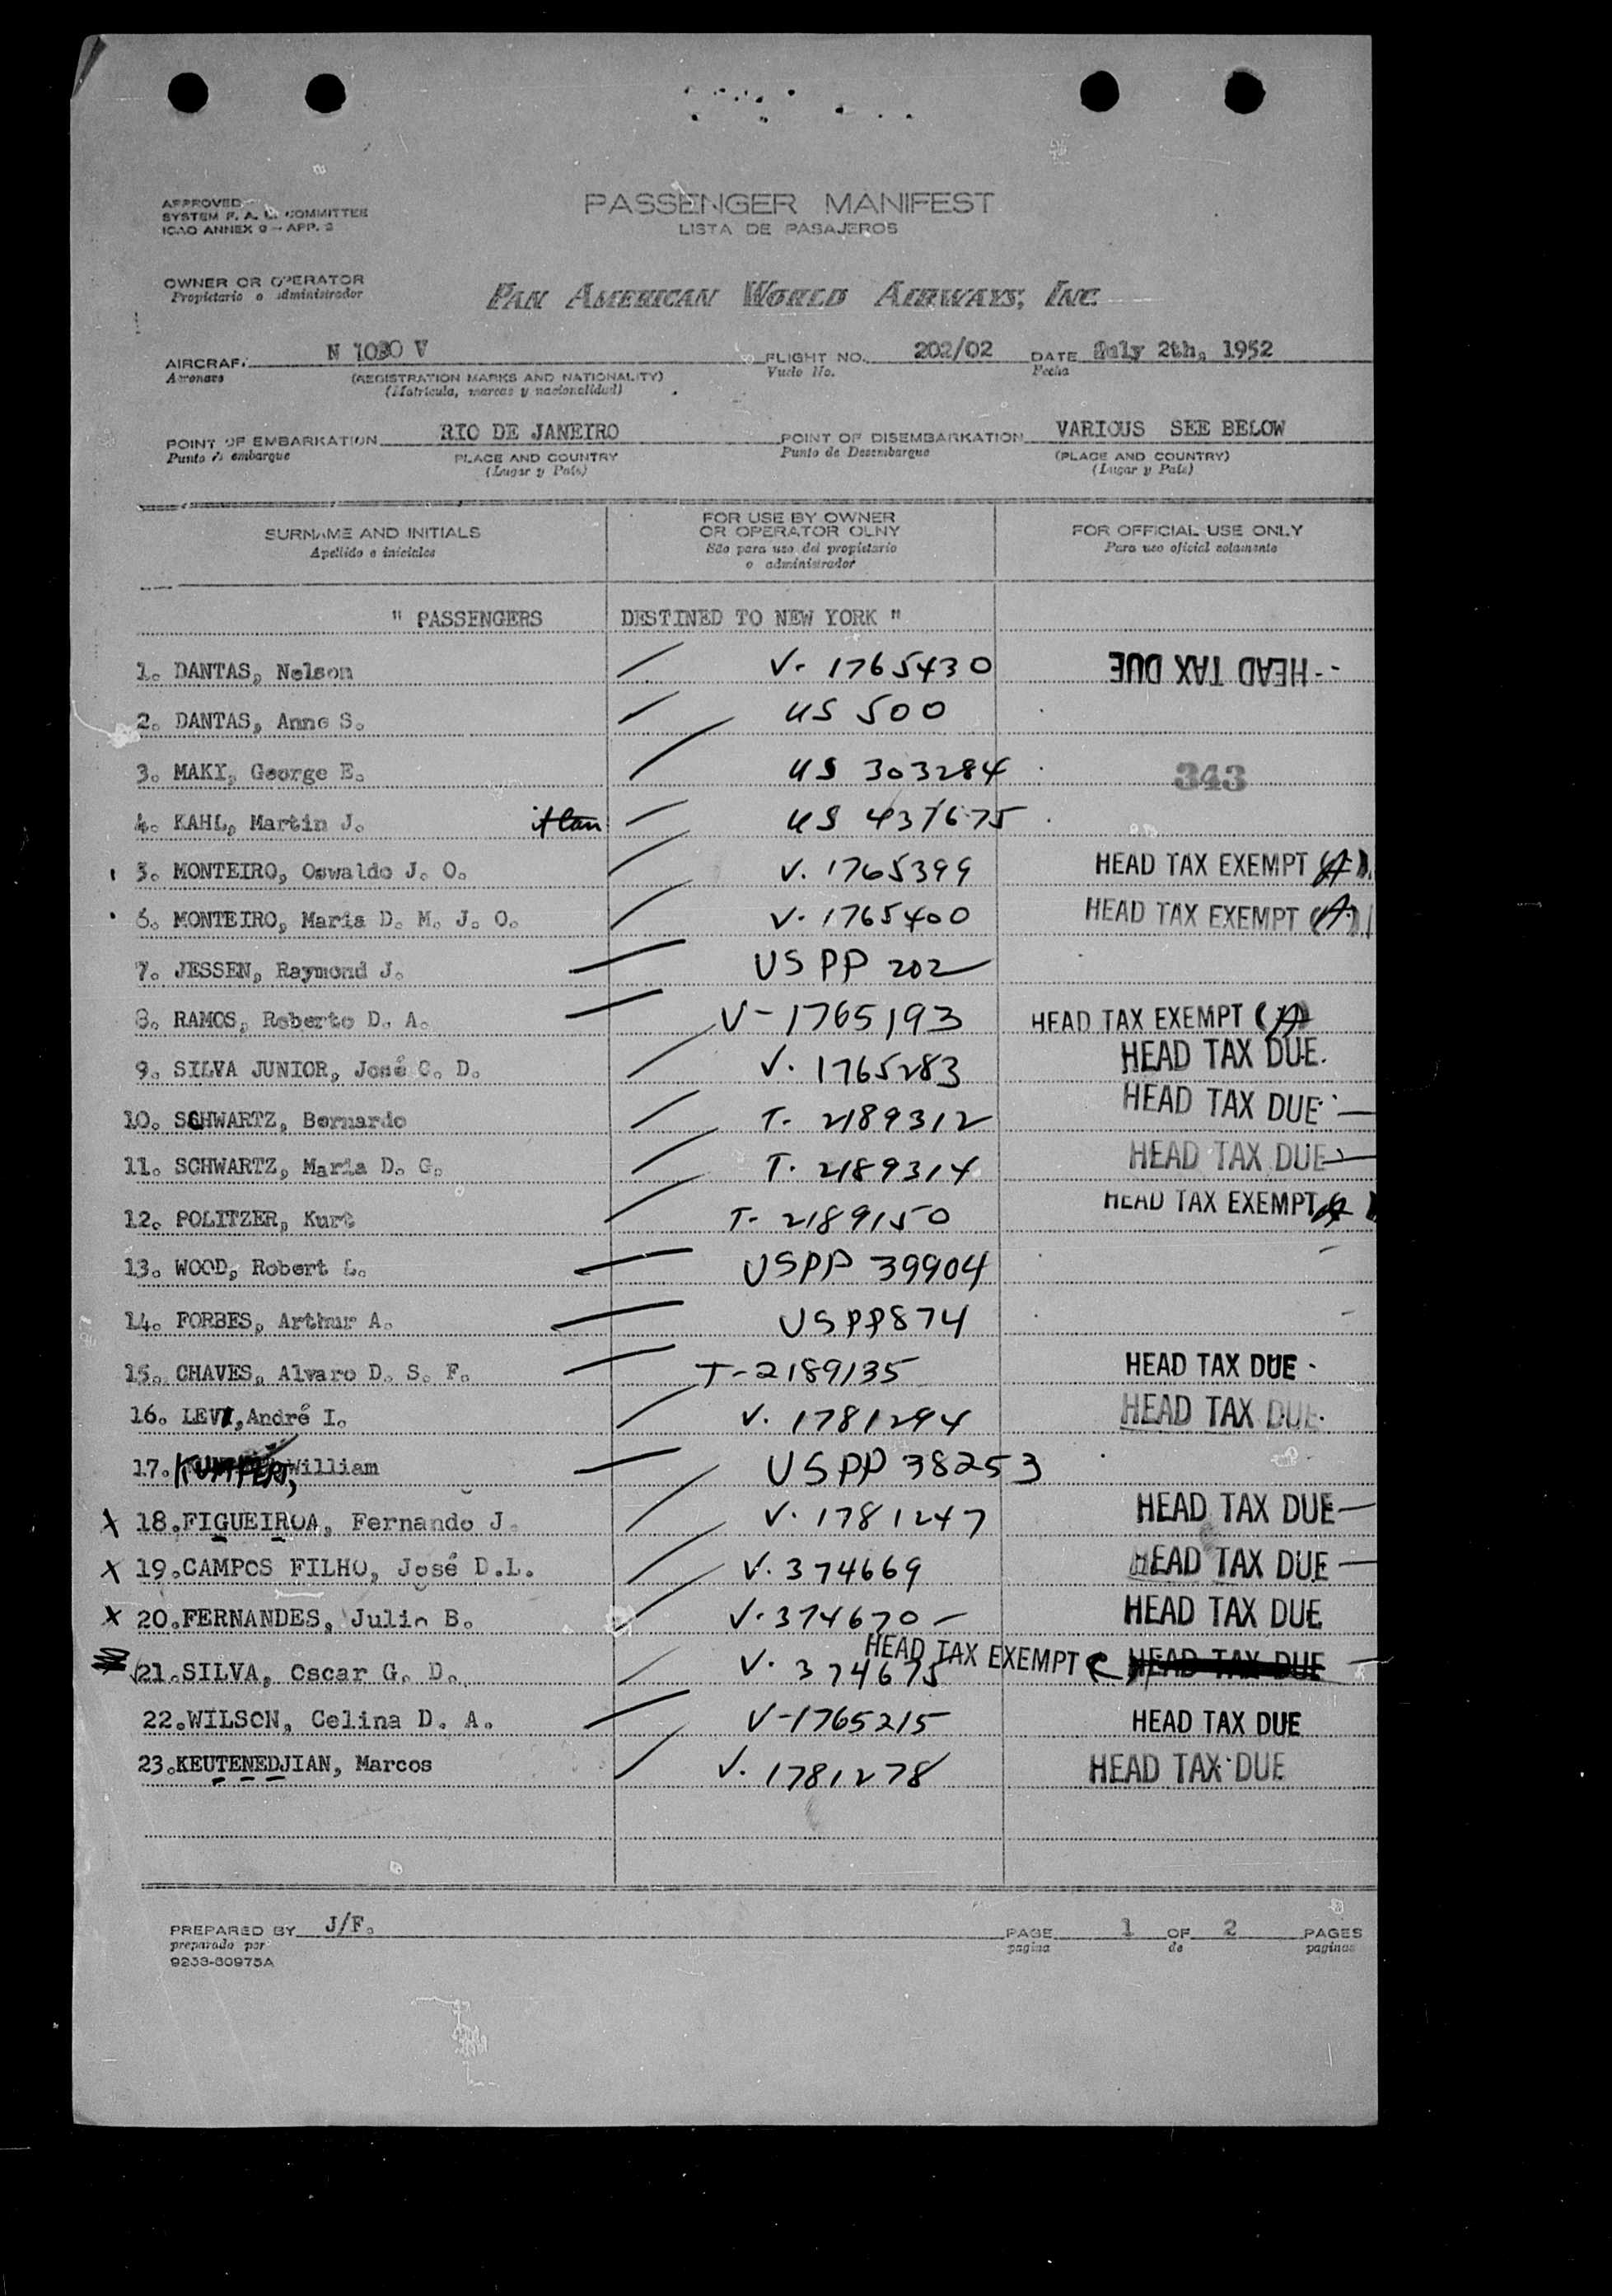 APPROVED
SYSTEM F. A. L. COMMITTEE
ICAO ANNEX 9 - APP. 2
PASSENGER MANIFEST
LISTA DE PASAJEROS
OWNER OR OPERATOR
Propietario o administrador
PAN AMERICAN WORLD AIRWAYS, INC.
AIRCRAFT N 1030 V FLIGHT NO. 202/02 DATE July 2th, 1952
Aeronave (REGISTRATION MARKS AND NATIONALITY) Vuelo No. Fecha
(Matricula, marcas y nacionalidad)
POINT OF EMBARKATION RIO DE JANEIRO POINT OF DISEMBARKATION VARIOUS SEE BELOW
Punto de embarque PLACE AND COUNTRY Punto de Desembarque (PLACE AND COUNTRY)
(Lugar y Pais) (Lugar y Pais)
SURNAME AND INITIALS FOR USE BY OWNER OR OPERATOR OLNY FOR OFFICIAL USE ONLY
Apellido e iniciales São para uso del propietario o administrador Para uso oficial solamente
" PASSENGERS DESTINED TO NEW YORK "
1. DANTAS, Nelson V- 1765430 HEAD TAX DUE
2. DANTAS, Anne S. US 500
3. MAKI, George E. US 303284 343
4. KAHL, Martin J. US 431675
5. MONTEIRO, Oswaldo J. O. V. 1765399 HEAD TAX EXEMPT (A)
6. MONTEIRO, Maria D. M. J. O. V- 1765400 HEAD TAX EXEMPT (A)
7. JESSEN, Raymond J. US PP 202
8. RAMOS, Roberto D. A. V-1765193 HEAD TAX EXEMPT (A)
9. SILVA JUNIOR, José C. D. V. 1765283 HEAD TAX DUE.
10. SCHWARTZ, Bernardo T- 2189312 HEAD TAX DUE
11. SCHWARTZ, Maria D. G. T. 2189314 HEAD TAX DUE
12. POLITZER, Kurt T- 2189150 HEAD TAX EXEMPT
13. WOOD, Robert L. USPP 39904
14. FORBES, Arthur A. USPP874
15. CHAVES, Alvaro D. S. F. T-2189135 HEAD TAX DUE
16. LEVI, André I. V. 1781294 HEAD TAX DUE
17. William USPP 38253
X 18. FIGUEIROA, Fernando J. V. 1781247 HEAD TAX DUE
X 19. CAMPOS FILHO, José D.L. V. 374669 HEAD TAX DUE
X 20. FERNANDES, Julio B. V-374670 HEAD TAX DUE
21. SILVA, Oscar G. D. V. 374675 HEAD TAX EXEMPT HEAD TAX DUE
22. WILSON, Celina D. A. V-1765215 HEAD TAX DUE
23. KEUTENEDJIAN, Marcos V. 1781278 HEAD TAX DUE
PREPARED BY J/F. PAGE 1 OF 2 PAGES
preparado por pagina de paginas
9253-60975A